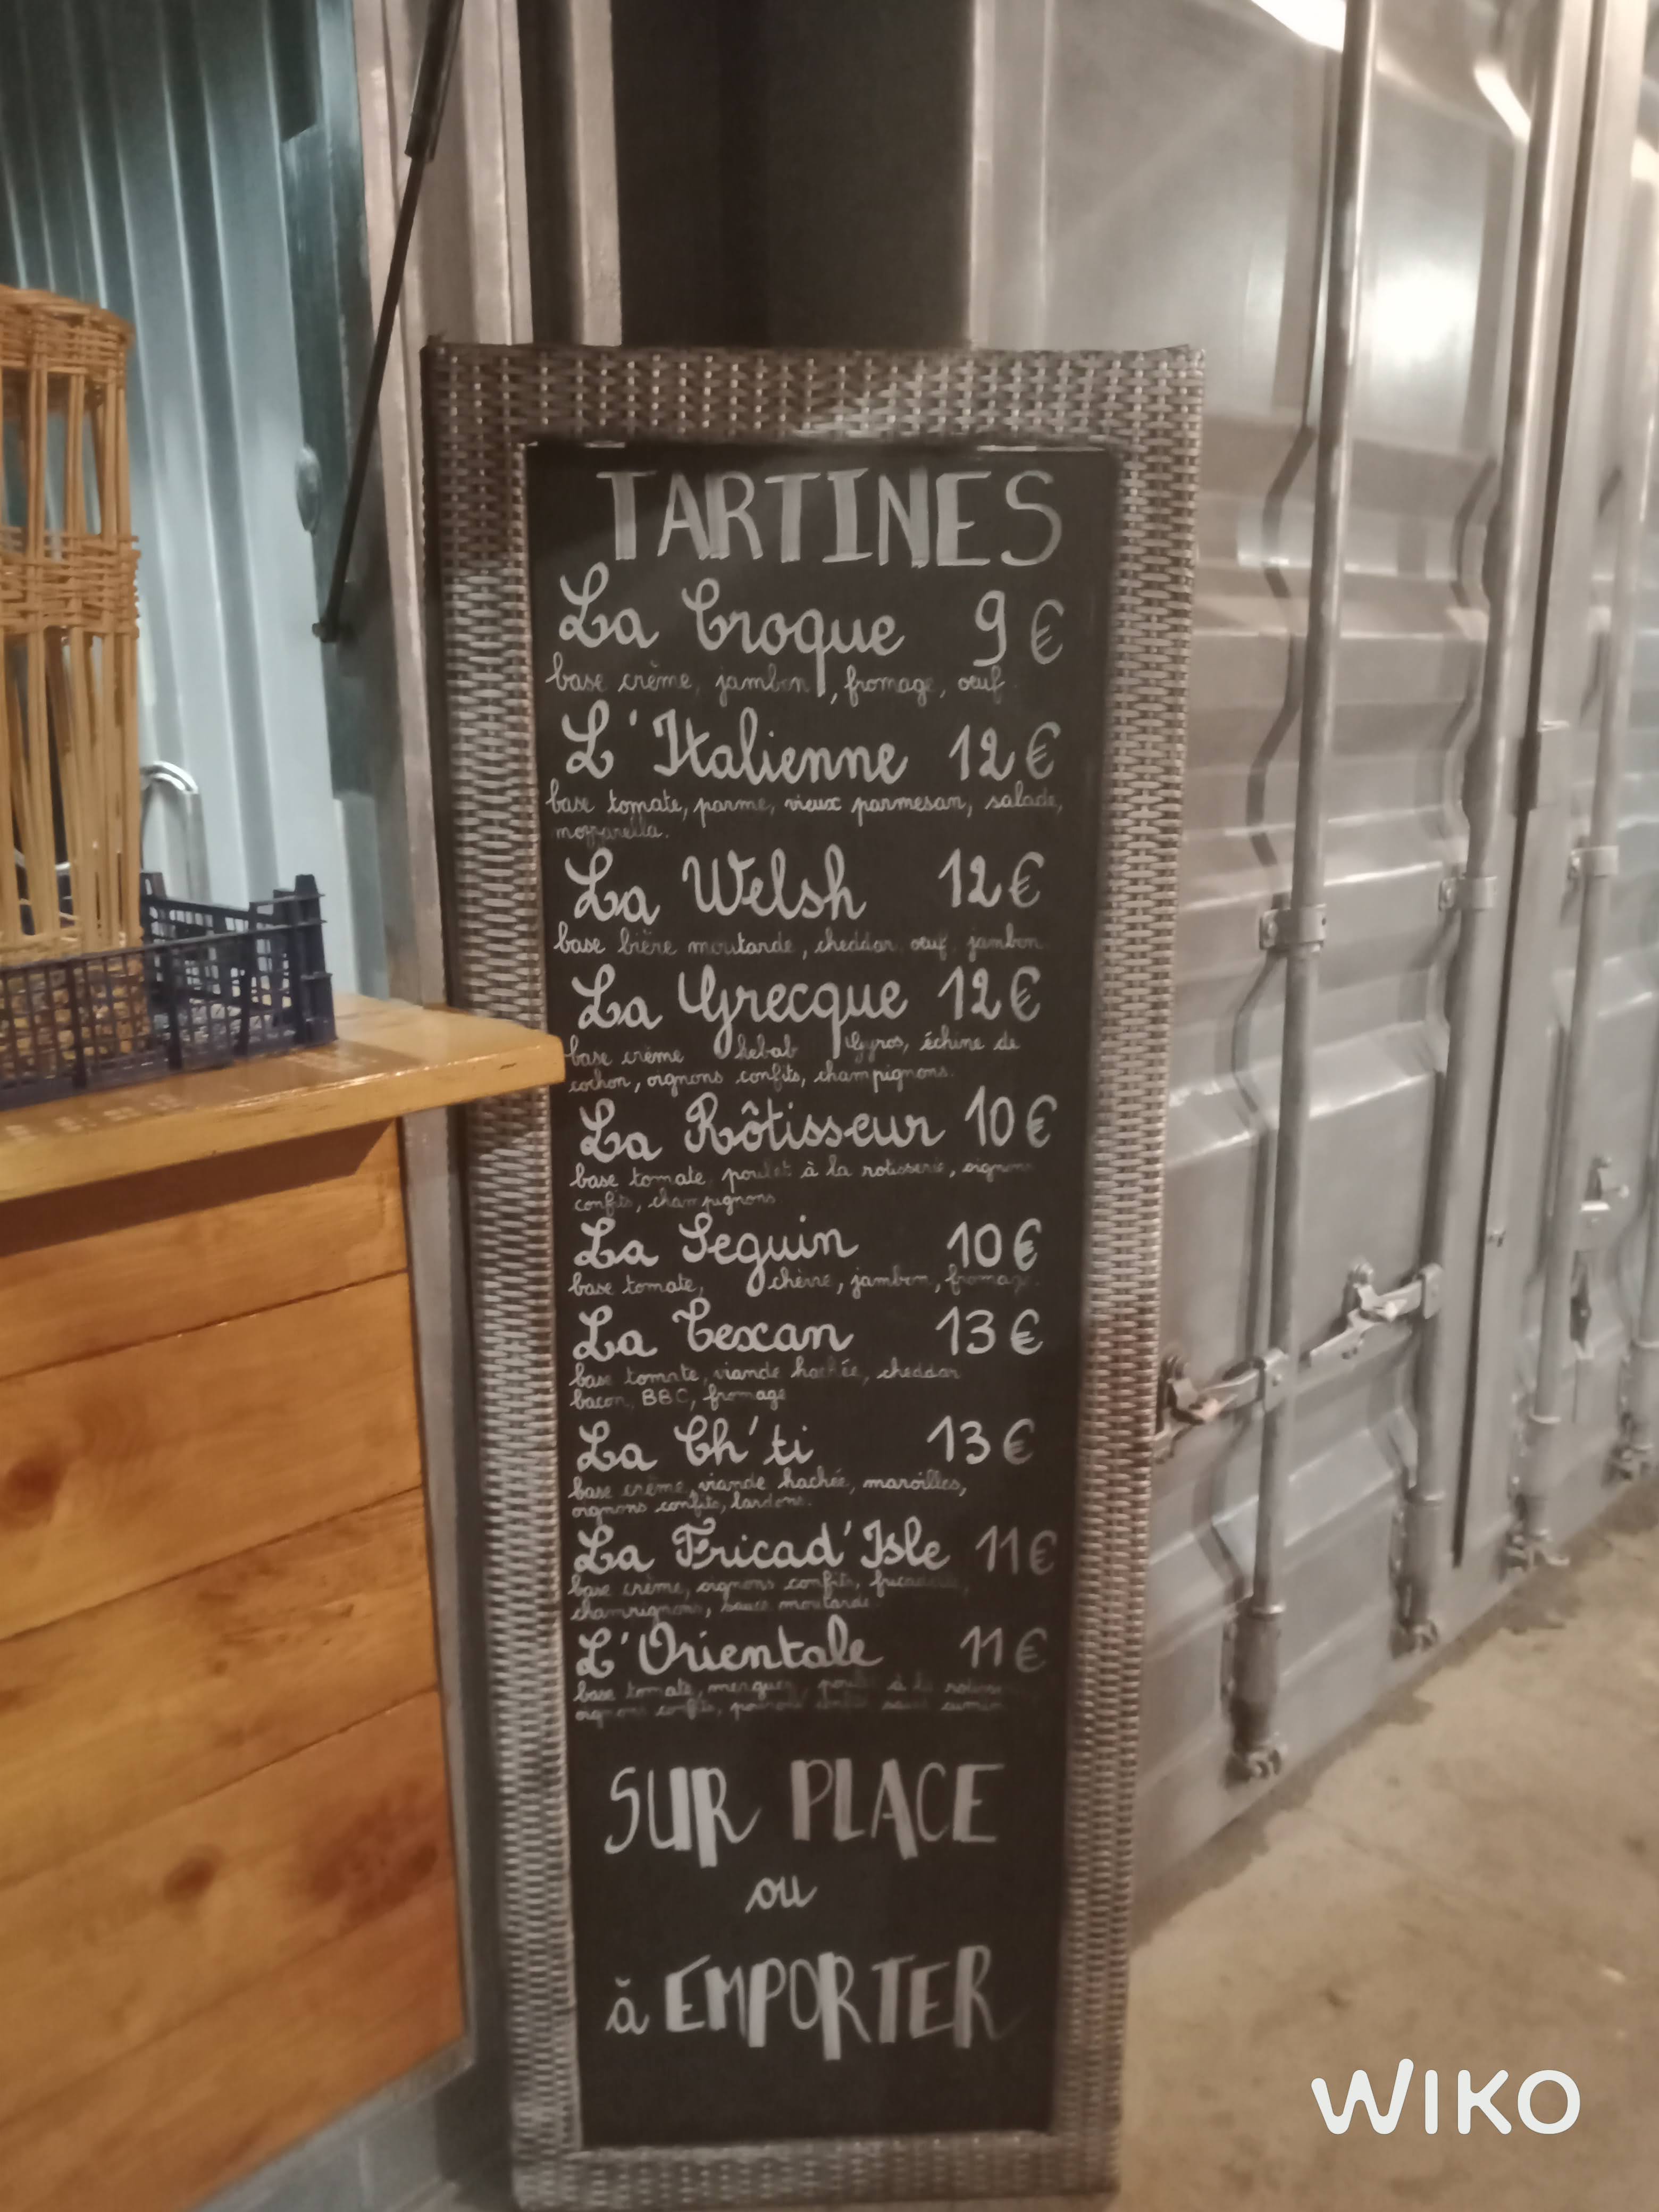 TARTINES
La Croque 9€
base crème, jambon, fromage, oeuf
L'Italienne 12€
base tomate, parme, vieux parmesan, salade,
mozzarella.
La Welsh 12€
base bière moutarde, cheddar oeuf, jambon
La Grecque 12€
base crème kebab Gyros, échine de
cochon, oignons confits, champignons.
La Rôtisseur 10€
base tomate, poulet à la rotisserie, oignons
confits, champignons
La Seguin 10€
base tomate, chèvre, jambon, fromage.
La Texan 13€
base tomate, viande hachée, cheddar
bacon, BBC, fromage
La Ch'ti 13€
base crème, viande hachée, maroilles,
oignons confits, lardons.
La Fricad'Isle 11€
base crème, oignons confits,
champignons, sauce moutarde
L'Orientale 11€
base tomate, merguez, poulet à la
oignons confits,
SUR PLACE
ou
à EMPORTER
WIKO